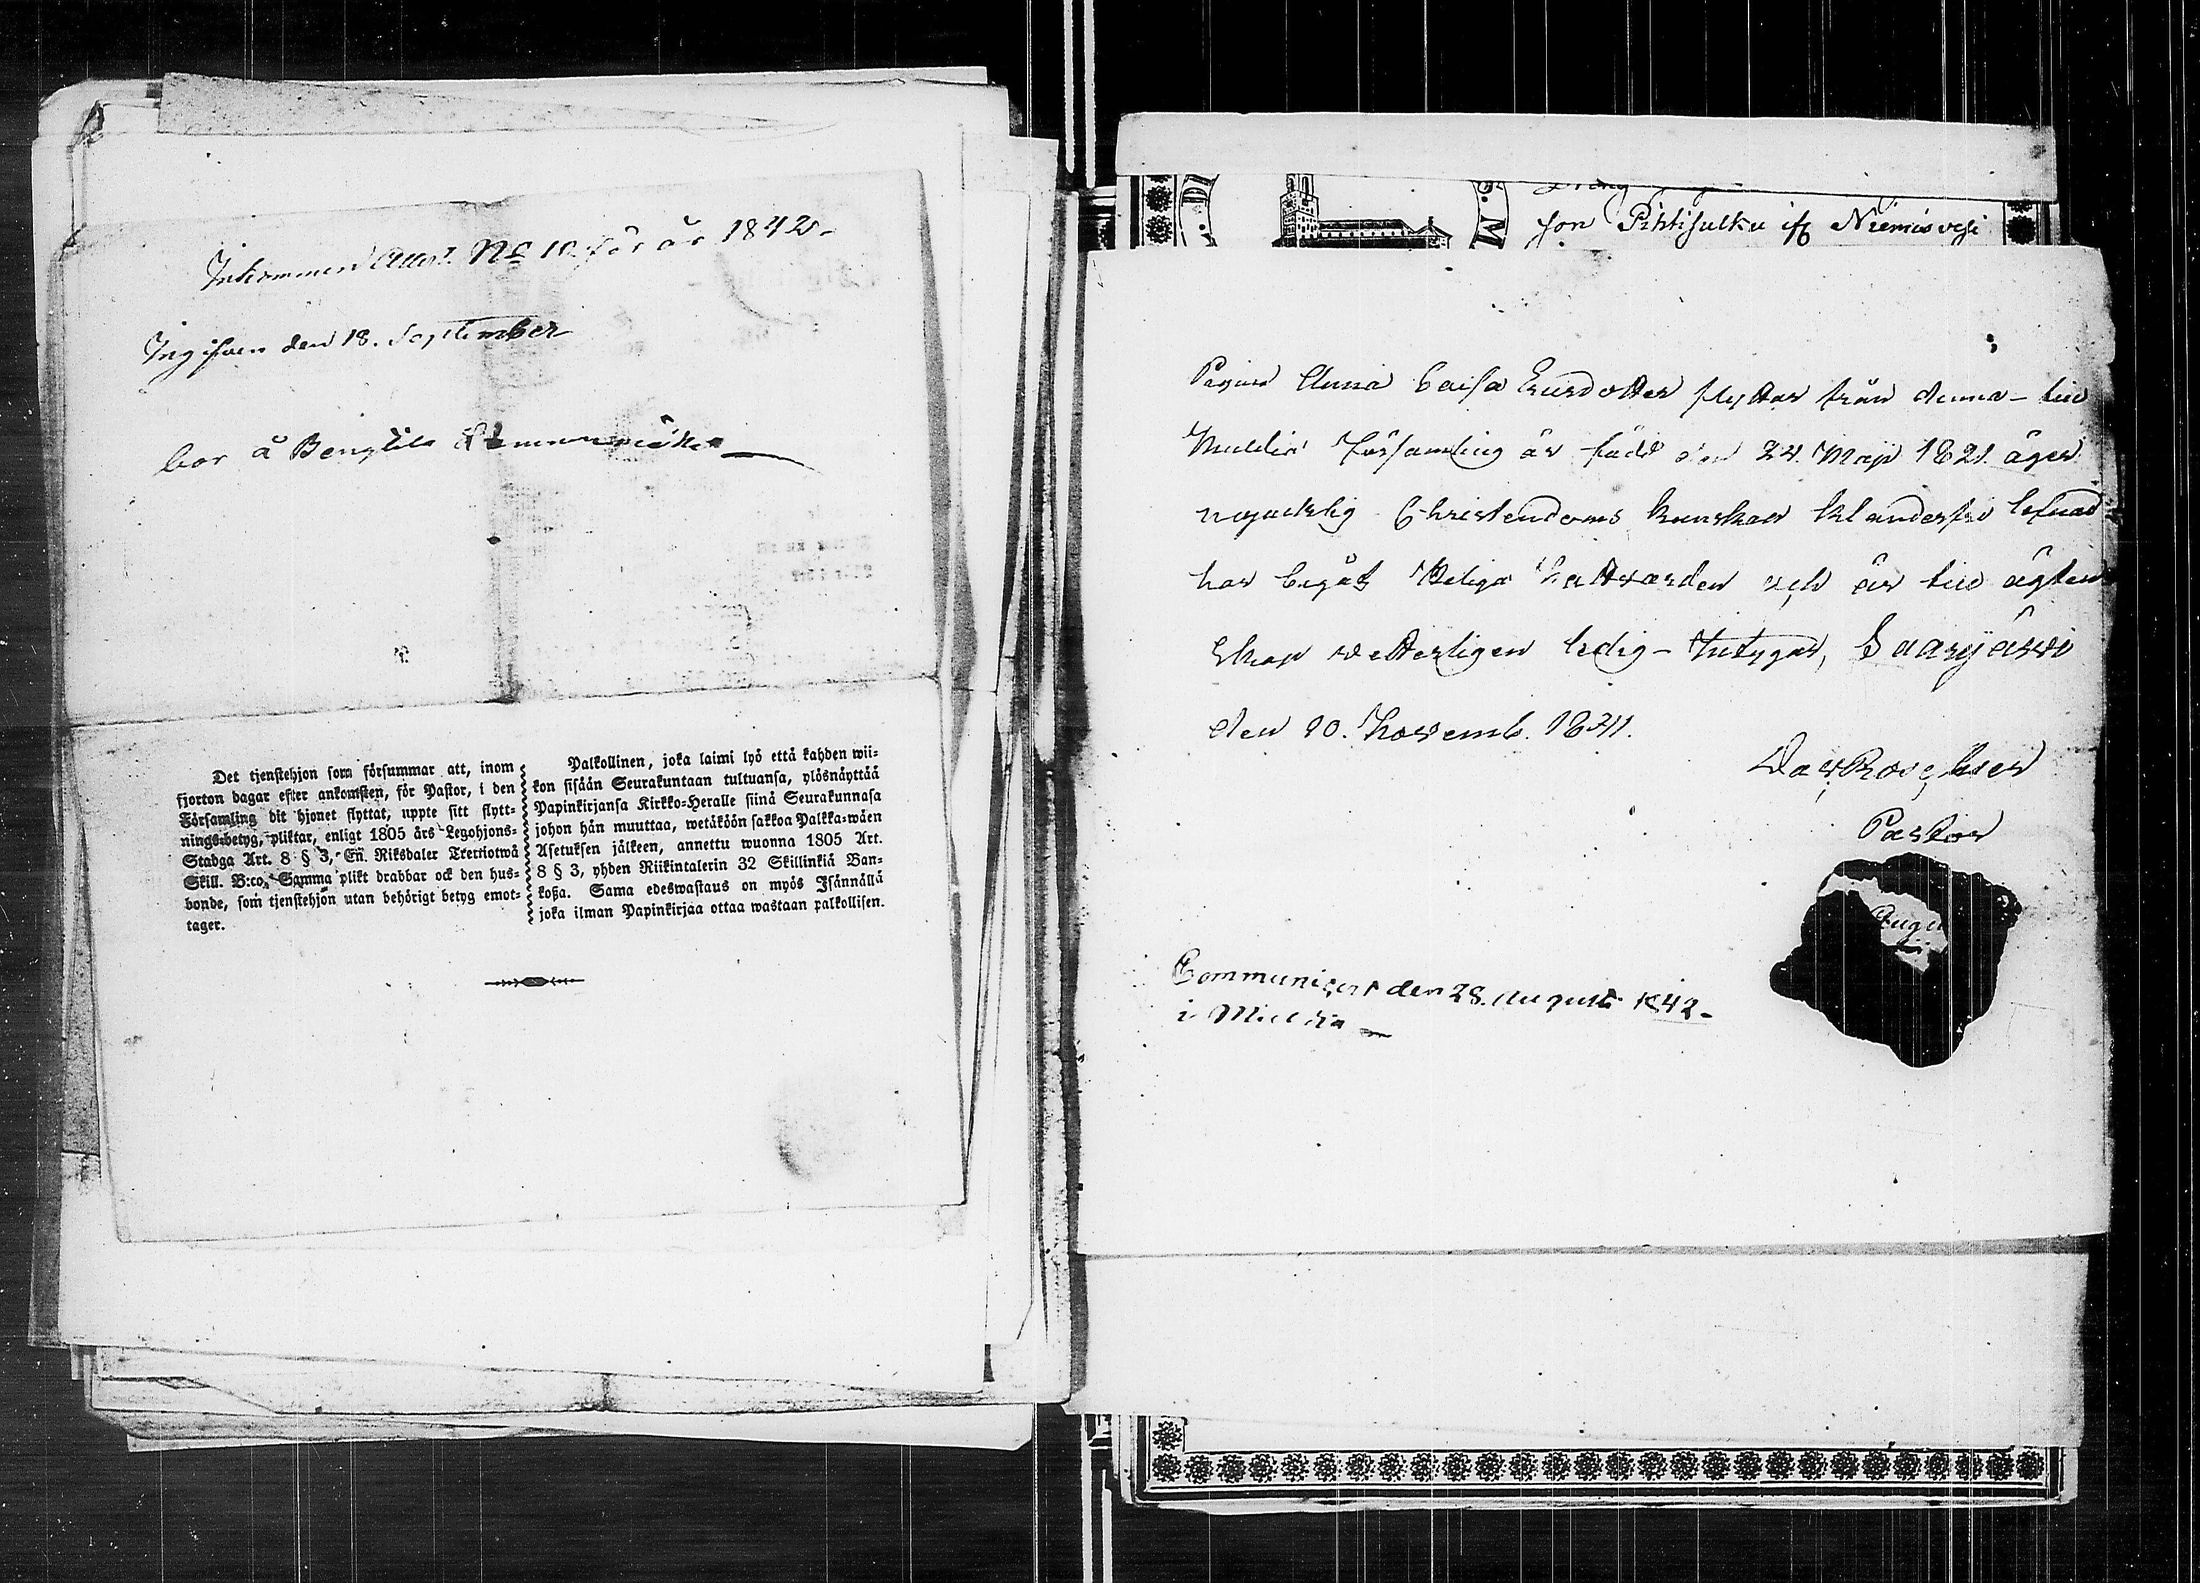 Inkommen Attest No 10. för år 1842.
Ingifven den 18. September
bor å Bengtila
Det tjenstehjon som försummar att, inom
fjorton dagar efter ankomsten, för Pastor, i den
Församling dit hjonet flyttat, uppte sitt flytt-
nings-betyg, pliktar, enligt 1805 års Legohjons-
Stadga Art. 8 § 3, En Riksdaler Trettiotwå
Skill. B:co. Samma plikt drabbar ock den hus-
bonde, som tjenstehjon utan behörigt betyg emot-
tager.
Palkollinen, joka laimi lyö että kahden wii-
kon sisään Seurakuntaan tultuansa, ylösnäyttää
Papinkirjansa Kirkko-Heralle siinä Seurakunnasa
johon hän muuttaa, wetäköön sakkoa Palkka-wäen
Asetuksen jälkeen, annettu wuonna 1805 Art.
8 § 3, yhden Riikintalerin 32 Skillinkiä Ban-
koßa. Sama edeswastaus on myös Isännällä
joka ilman Papinkirjaa ottaa wastaan palkollisen.
son Pihtisulku if Niemisvesi
Pigan Anna Caisa Ersdotter flyttar från denna till
Multia Församling är född den 24. Maji 1821. äger
nöjacktig Christendoms kunskap klanderfri lefnad
har begått Heliga Nattvarden och är till ägten
skap vetterligen ledig - Intygar, Saarijärvi
den 20. Novemb. 1841.
Pastor
Communicert den 28. Augusti 1842.
i Multia